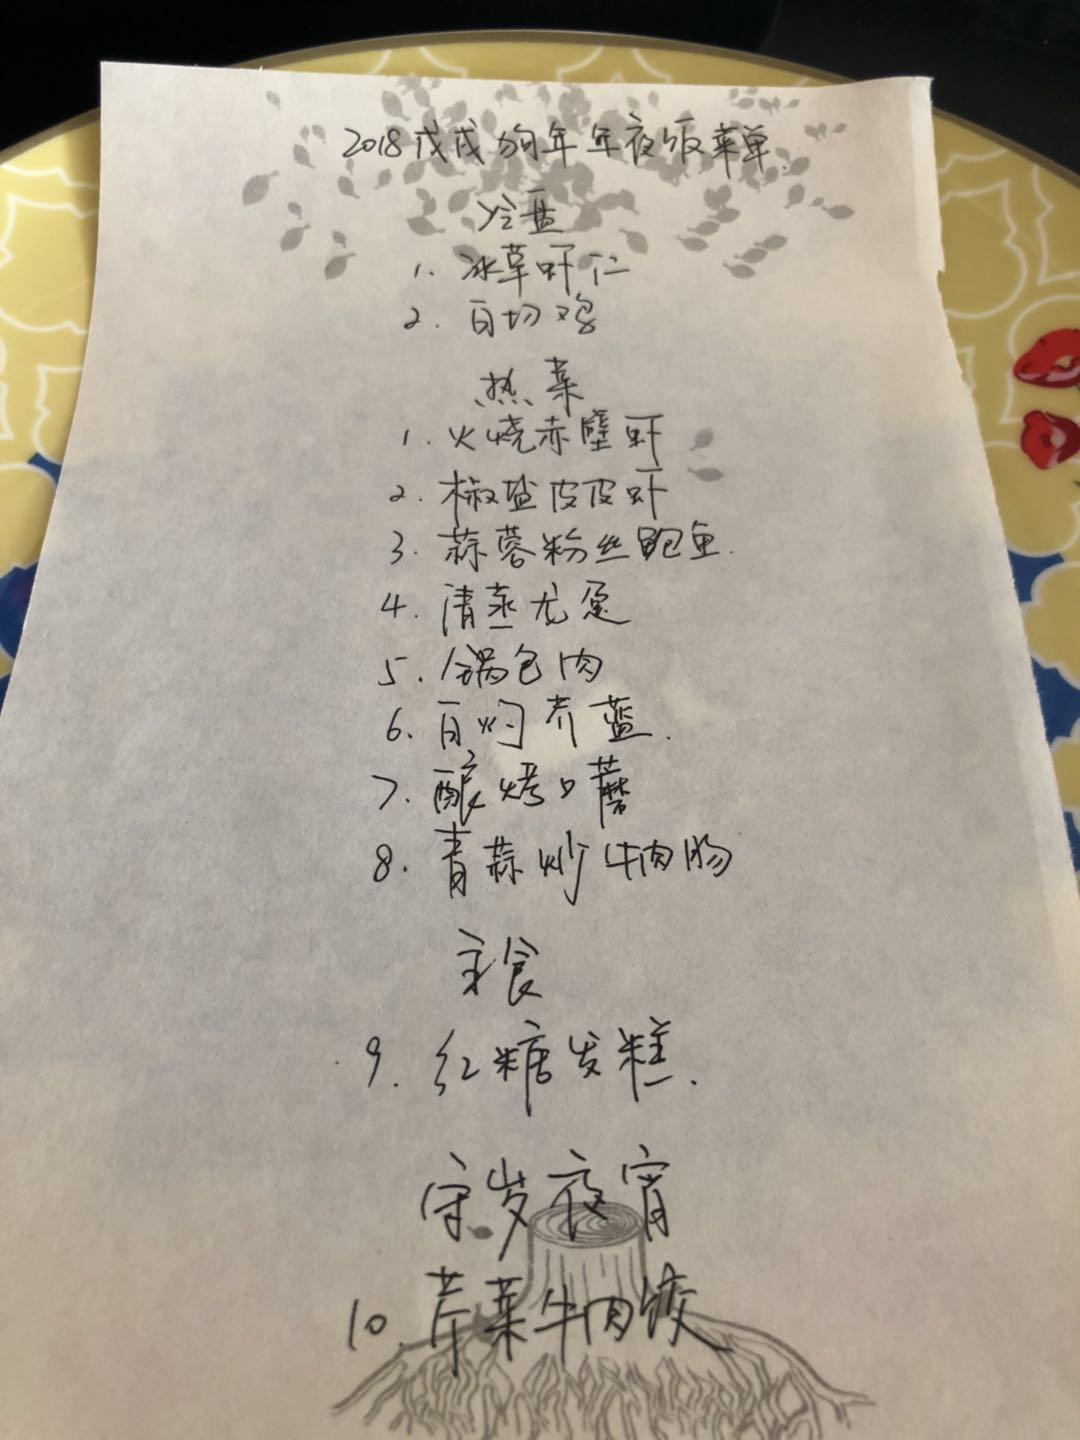 2018戊戌狗年年夜饭菜单.
冷盘
1. 冰草虾仁
2. 白切鸡
热菜
1. 火烧赤壁虾
2. 椒盐皮皮虾
3. 蒜蓉粉丝鲍鱼.
4. 清蒸龙趸
5. 锅包肉
6. 白灼芥蓝.
7. 酿烤口蘑
8. 青蒜炒牛肉肠
主食
9. 红糖发糕.
守岁夜宵
10. 芹菜牛肉饺